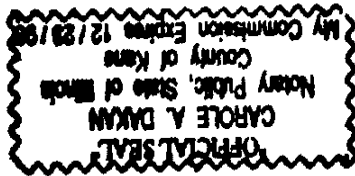 "OFFICIAL SEAL"
CAROLE A. DAKAN
Notary Public, State of Illinois
County of Kane
My Commission Expires 12/23/98